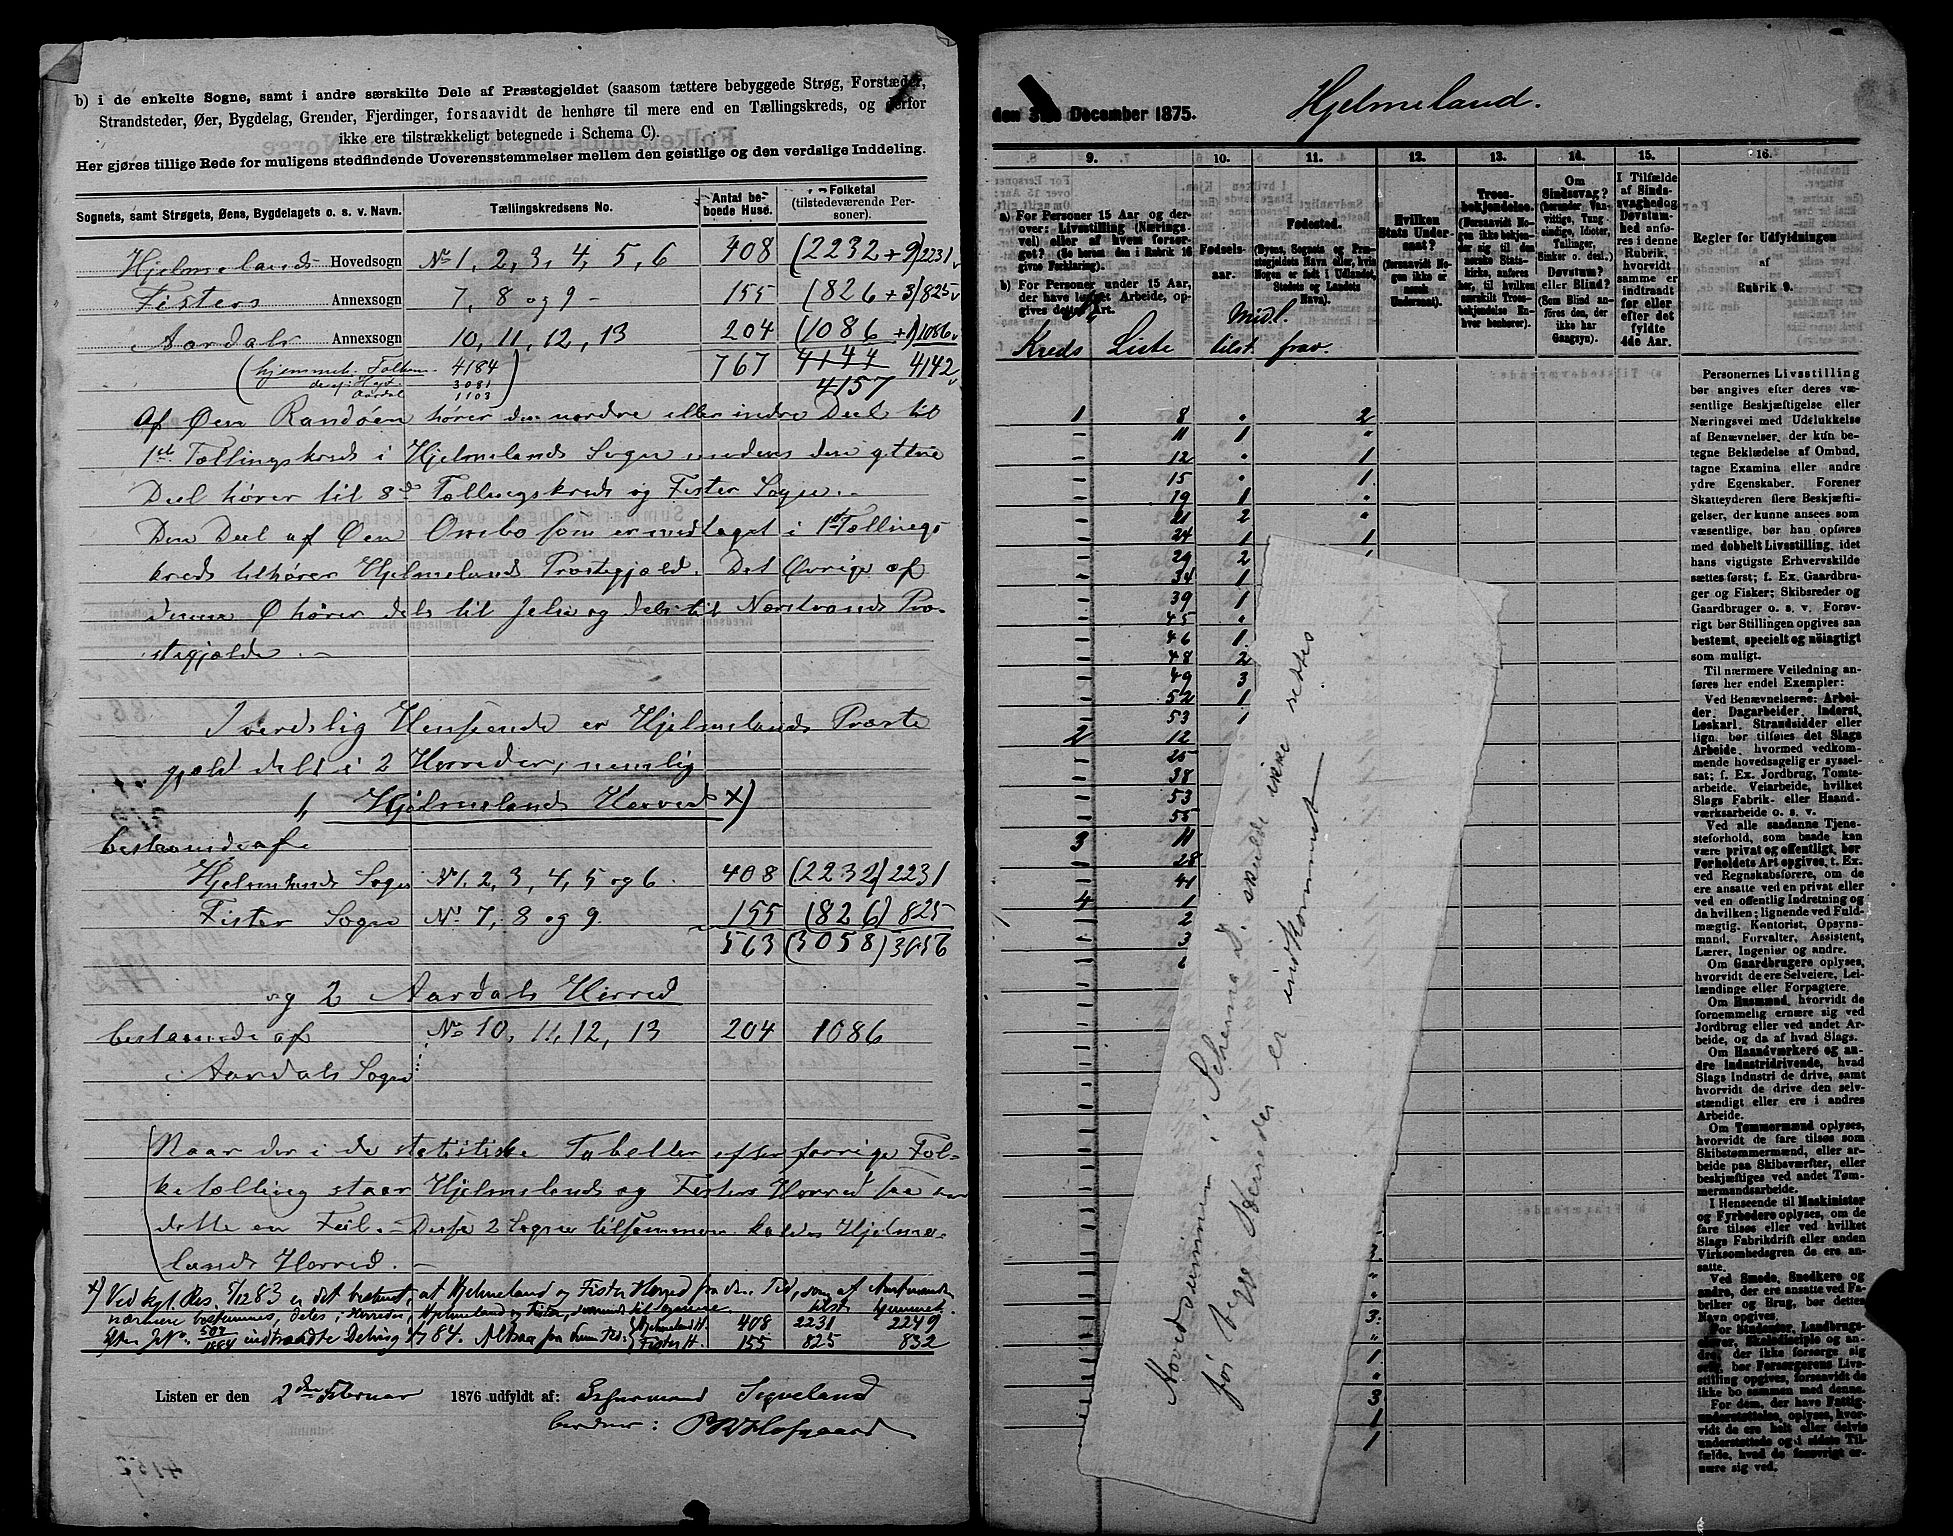 b) i de enkelte Sogne, samt i andre særskilte Dele af Præstegjeldet (saasom tættere bebyggede Strøg, Forstæder,
Strandsteder, Øer, Bygdelag, Grender, Fjerdinger, forsaavidt de henhøre til mere end en Tællingskreds, og derfor
ikke ere tilstrækkeligt betegnede i Schema C).
Her gjøres tillige Rede for muligens stedfindende Uoverensstemmelser mellem den geistlige og den verdslige Inddeling.
Sognets, samt Strøgets, Øens, Bygdelagets o. s. v. Navn. Tællingskredsens No. Antal beboede Huse. Folketal (tilstedeværende Personer).
Hjelmelands Hovedsogn No 1, 2, 3, 4, 5, 6 408 (2232 + 9) 2231
Fisters Annexsogn 7, 8 og 9 - 155 (826 + 3) 825
Aardals Annexsogn 10, 11, 12, 13 204 (1086 + 1) 1086
(hjemmeh. Folkem. 4184 767 4144 4142
3081 4157
Aardal 1103)
Af Øen Randøen hører den nordre eller indre Deel til
1ste Tællingskreds i Hjelmelands Sogn medens den yttre
Deel hører til 8de Tællingskreds og Fister Sogn. -
Den Deel af Øen Ombo som er medtaget i 1ste Tællings-
kreds tilhører Hjelmelands Præstegjæld. Det Øvrige af
denne Ø hører dels til Jelse og dels til Nærstrands Præ-
stegjælde. -
I verdslig Henseende er Hjelmelands Præste
gjæld delt i 2 Herreder, nemlig
1, Hjelmelands Herred x)
bestaaende af
Hjelmelands Sogn No 1, 2, 3, 4, 5 og 6. 408 (2232) 2231
Fister Sogn No 7, 8 og 9. 155 (826) 825
563 (3058) 3056
og 2 Aardals Herred
bestaaende af No 10, 11, 12, 13 204 1086
Aardals Sogn
(Naar der i de statistiske Tabeller efter forrige Fol-
ketælling staar Hjelmelands og Fisters Herred saa er
dette en Feil. - Disse 2 Sogne tilsammen kaldes Hjelme-
lands Herred. -
x) Ved kgl. Res. 5/12 83 er det bestemt, at Hjelmeland og Fister Herred fra den Tid, som af Amtmanden
nærmere bestemmes, deles i Herreder, Hjelmeland og Fister, tilst. hjemmeh.
Hjelmeland H. 408 2231 2249
Fister H. 155 825 832
Listen er den 2den Februar 1876 udfyldt af: Sigveland
den 31te December 1875. Hjelmeland.
9. 10. 11. 12. 13. 14. 15. 16.
a) For Personer 15 Aar og derover: Livsstilling (Næringsvei) eller af hvem forsørget? (Se herom den i Rubrik 16 givne Forklaring).
b) For Personer under 15 Aar, der have lønnet Arbeide, opgives dettes Art.
Fødselsaar.
Fødested. (Byens, Sognets og Præstegjeldets Navn eller, hvis Nogen er født i Udlandet, Stedets og Landets Navn).
Hvilken Stats Undersaat? (forsaavidt Nogen ikke er norsk Undersaat).
Troesbekjendelse. (Forsaavidt Nogen ikke bekjender sig til den norske Statskirke, anføres her, til hvilken særskilt Troesbekjendelse Enhver henhører).
Om Sindssvag? (herunder Vanvittige, Tungsindige, Idioter, Tullinger, Sinker o. desl.). Døvstum? eller Blind? (Som Blind anføres den, der ikke har Gangsyn).
I Tilfælde af Sindssvaghed og Døvstumhed anføres i denne Rubrik, hvorvidt samme er indtraadt før eller efter det fyldte 4de Aar.
Regler for Udfyldningen af Rubrik 9.
Midl.
Kreds Liste tilst. frav.
1 8 " 2
" 11 1 "
" 12 " 1
" 15 " 1
" 19 1 "
" 21 2 "
" 24 1 1
" 29 2
" 34 1
" 39 1
" 45 "
" 46 1
" 48 2
" 49 3
" 52 1
" 53 1
2 12
" 25
" 38
" 53
" 55
3 11
" 28
" 41
4 1
" 2
" 3
3
"
1
"
3
1
1
Hovedsummen i Schema D. skulde ikke rettes
før begge Herreder er indkommet
Personernes Livsstilling
bør angives efter deres væ-
sentlige Beskjæftigelse eller
Næringsvei med Udelukkelse
af Benævnelser, der kun be-
tegne Beklædelse af Ombud,
tagne Examina eller andre
ydre Egenskaber. Forener
Skatteyderen flere Beskjæfti-
gelser, der kunne ansees som
væsentlige, bør han opføres
med dobbelt Livsstilling, idet
hans vigtigste Erhvervskilde
sættes først; f. Ex. Gaardbru-
ger og Fisker; Skibsreder og
Gaardbruger o. s. v. Forøv-
rigt bør Stillingen opgives saa
bestemt, specielt og nøiagtigt
som muligt.
Til nærmere Veiledning an-
føres her endel Exempler:
Ved Benævnelserne: Arbei-
der, Dagarbeider, Inderst,
Løskarl, Strandsidder eller
lign. bør tilføies det Slags
Arbeide, hvormed vedkom-
mende hovedsagelig er syssel-
sat; f. Ex. Jordbrug, Tomte-
arbeide, Veiarbeide, hvilket
Slags Fabrik- eller Haand-
værksarbeide o. s. v.
Ved alle saadanne Tjene-
steforhold, som baade kan
være privat og offentligt, bør
Forholdets Art opgives, t. Ex.
ved Regnskabsførere, om de
ere ansatte ved en privat eller
ved en offentlig Indretning og
da hvilken; lignende ved Fuld-
mægtig, Kontorist, Opsyns-
mand, Forvalter, Assistent,
Lærer, Ingeniør og andre.
Om Gaardbrugere oplyses,
hvorvidt de ere Selveiere, Lei-
lændinge eller Forpagtere.
Om Husmænd, hvorvidt de
fornemmelig ernære sig ved
Jordbrug eller ved andet Ar-
beide, og da af hvad Slags.
Om Haandværkere og an-
dre Industridrivende, hvad
Slags Industri de drive, samt
hvorvidt de drive den selv-
stændigt eller ere i andres
Arbeide.
Om Tømmermænd oplyses,
hvorvidt de fare tilsøs som
Skibstømmermænd, eller ar-
beide paa Skibsværfter, eller
beskjæftiges ved andet Tøm-
mermandsarbeide.
I Henseende til Maskinister
og Fyrbødere oplyses, om de
fare tilsøs eller ved hvilket
Slags Fabrikdrift eller anden
Virksomhedsgren de ere an-
satte.
Ved Smede, Snedkere og
andre, der ere ansatte ved Fa-
briker og Brug, bør dettes
Navn opgives.
For Studenter, Landbrugs-
elever, Skoledisciple og an-
dre, der ikke forsørge sig
selv, bør Forsørgerens Livs-
stilling opgives, forsaavidt de
ikke bo sammen med denne.
For dem, der have Fattig-
understøttelse, oplyses, hvor-
vidt de ere helt eller delvis
understøttede og i sidste Til-
fælde, hvad de forøvrigt er-
nære sig ved.